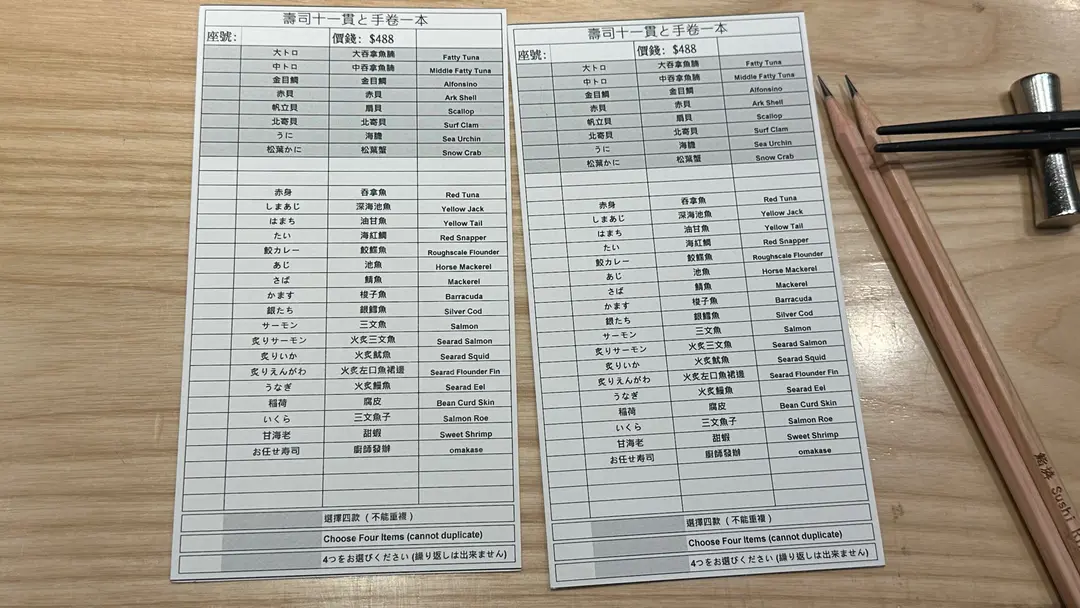 壽司十一貫と手卷一本
座號： 價錢：$488
大トロ 大吞拿魚腩 Fatty Tuna
中トロ 中吞拿魚腩 Middle Fatty Tuna
金目鯛 金目鯛 Alfonsino
赤貝 赤貝 Ark Shell
帆立貝 扇貝 Scallop
北寄貝 北寄貝 Surf Clam
うに 海膽 Sea Urchin
松葉かに 松葉蟹 Snow Crab
赤身 吞拿魚 Red Tuna
しまあじ 深海池魚 Yellow Jack
はまち 油甘魚 Yellow Tail
たい 海紅鯛 Red Snapper
鮫カレー 鮫鰈魚 Roughscale Flounder
あじ 池魚 Horse Mackerel
さば 鯖魚 Mackerel
かます 梭子魚 Barracuda
銀たち 銀鱈魚 Silver Cod
サーモン 三文魚 Salmon
炙りサーモン 火炙三文魚 Searad Salmon
炙りいか 火炙魷魚 Searad Squid
炙りえんがわ 火炙左口魚裙邊 Searad Flounder Fin
うなぎ 火炙鰻魚 Searad Eel
稲荷 腐皮 Bean Curd Skin
いくら 三文魚子 Salmon Roe
甘海老 甜蝦 Sweet Shrimp
お任せ寿司 廚師發辦 omakase
選擇四款（不能重複）
Choose Four Items (cannot duplicate)
4つをお選びください (繰り返しは出来ません)
壽司十一貫と手卷一本
座號： 價錢：$488
大トロ 大吞拿魚腩 Fatty Tuna
中トロ 中吞拿魚腩 Middle Fatty Tuna
金目鯛 金目鯛 Alfonsino
赤貝 赤貝 Ark Shell
帆立貝 扇貝 Scallop
北寄貝 北寄貝 Surf Clam
うに 海膽 Sea Urchin
松葉かに 松葉蟹 Snow Crab
赤身 吞拿魚 Red Tuna
しまあじ 深海池魚 Yellow Jack
はまち 油甘魚 Yellow Tail
たい 海紅鯛 Red Snapper
鮫カレー 鮫鰈魚 Roughscale Flounder
あじ 池魚 Horse Mackerel
さば 鯖魚 Mackerel
かます 梭子魚 Barracuda
銀たち 銀鱈魚 Silver Cod
サーモン 三文魚 Salmon
炙りサーモン 火炙三文魚 Searad Salmon
炙りいか 火炙魷魚 Searad Squid
炙りえんがわ 火炙左口魚裙邊 Searad Flounder Fin
うなぎ 火炙鰻魚 Searad Eel
稲荷 腐皮 Bean Curd Skin
いくら 三文魚子 Salmon Roe
甘海老 甜蝦 Sweet Shrimp
お任せ寿司 廚師發辦 omakase
選擇四款（不能重複）
Choose Four Items (cannot duplicate)
4つをお選びください (繰り返しは出来ません)
Sushi